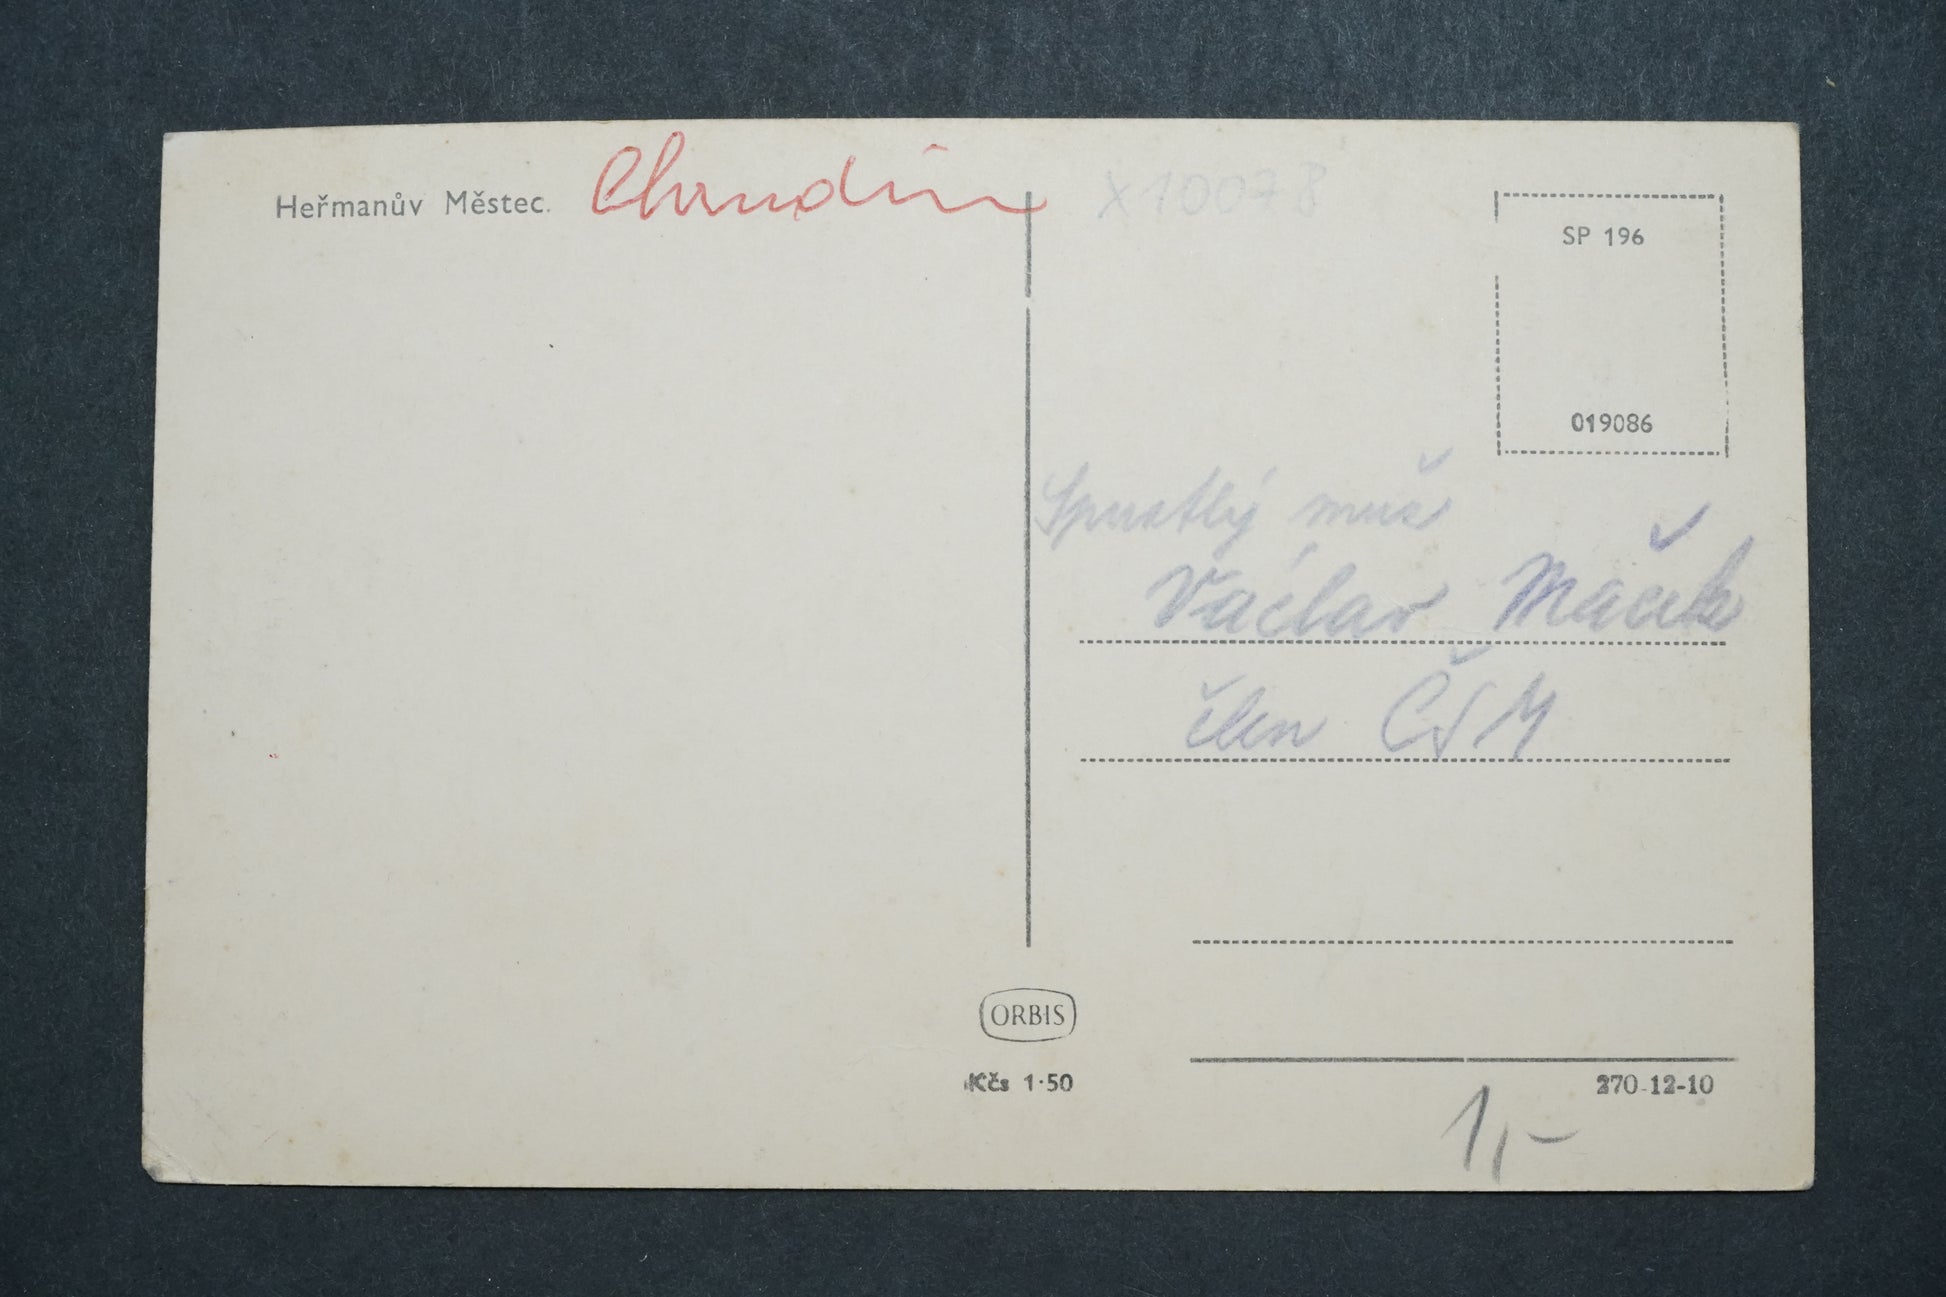 Heřmanův Městec. Chrudim
X10078
SP 196
019086
Spustlý muž
Václav Mačák
člen ČSM
ORBIS
Kčs 1·50
270-12-10
1,-